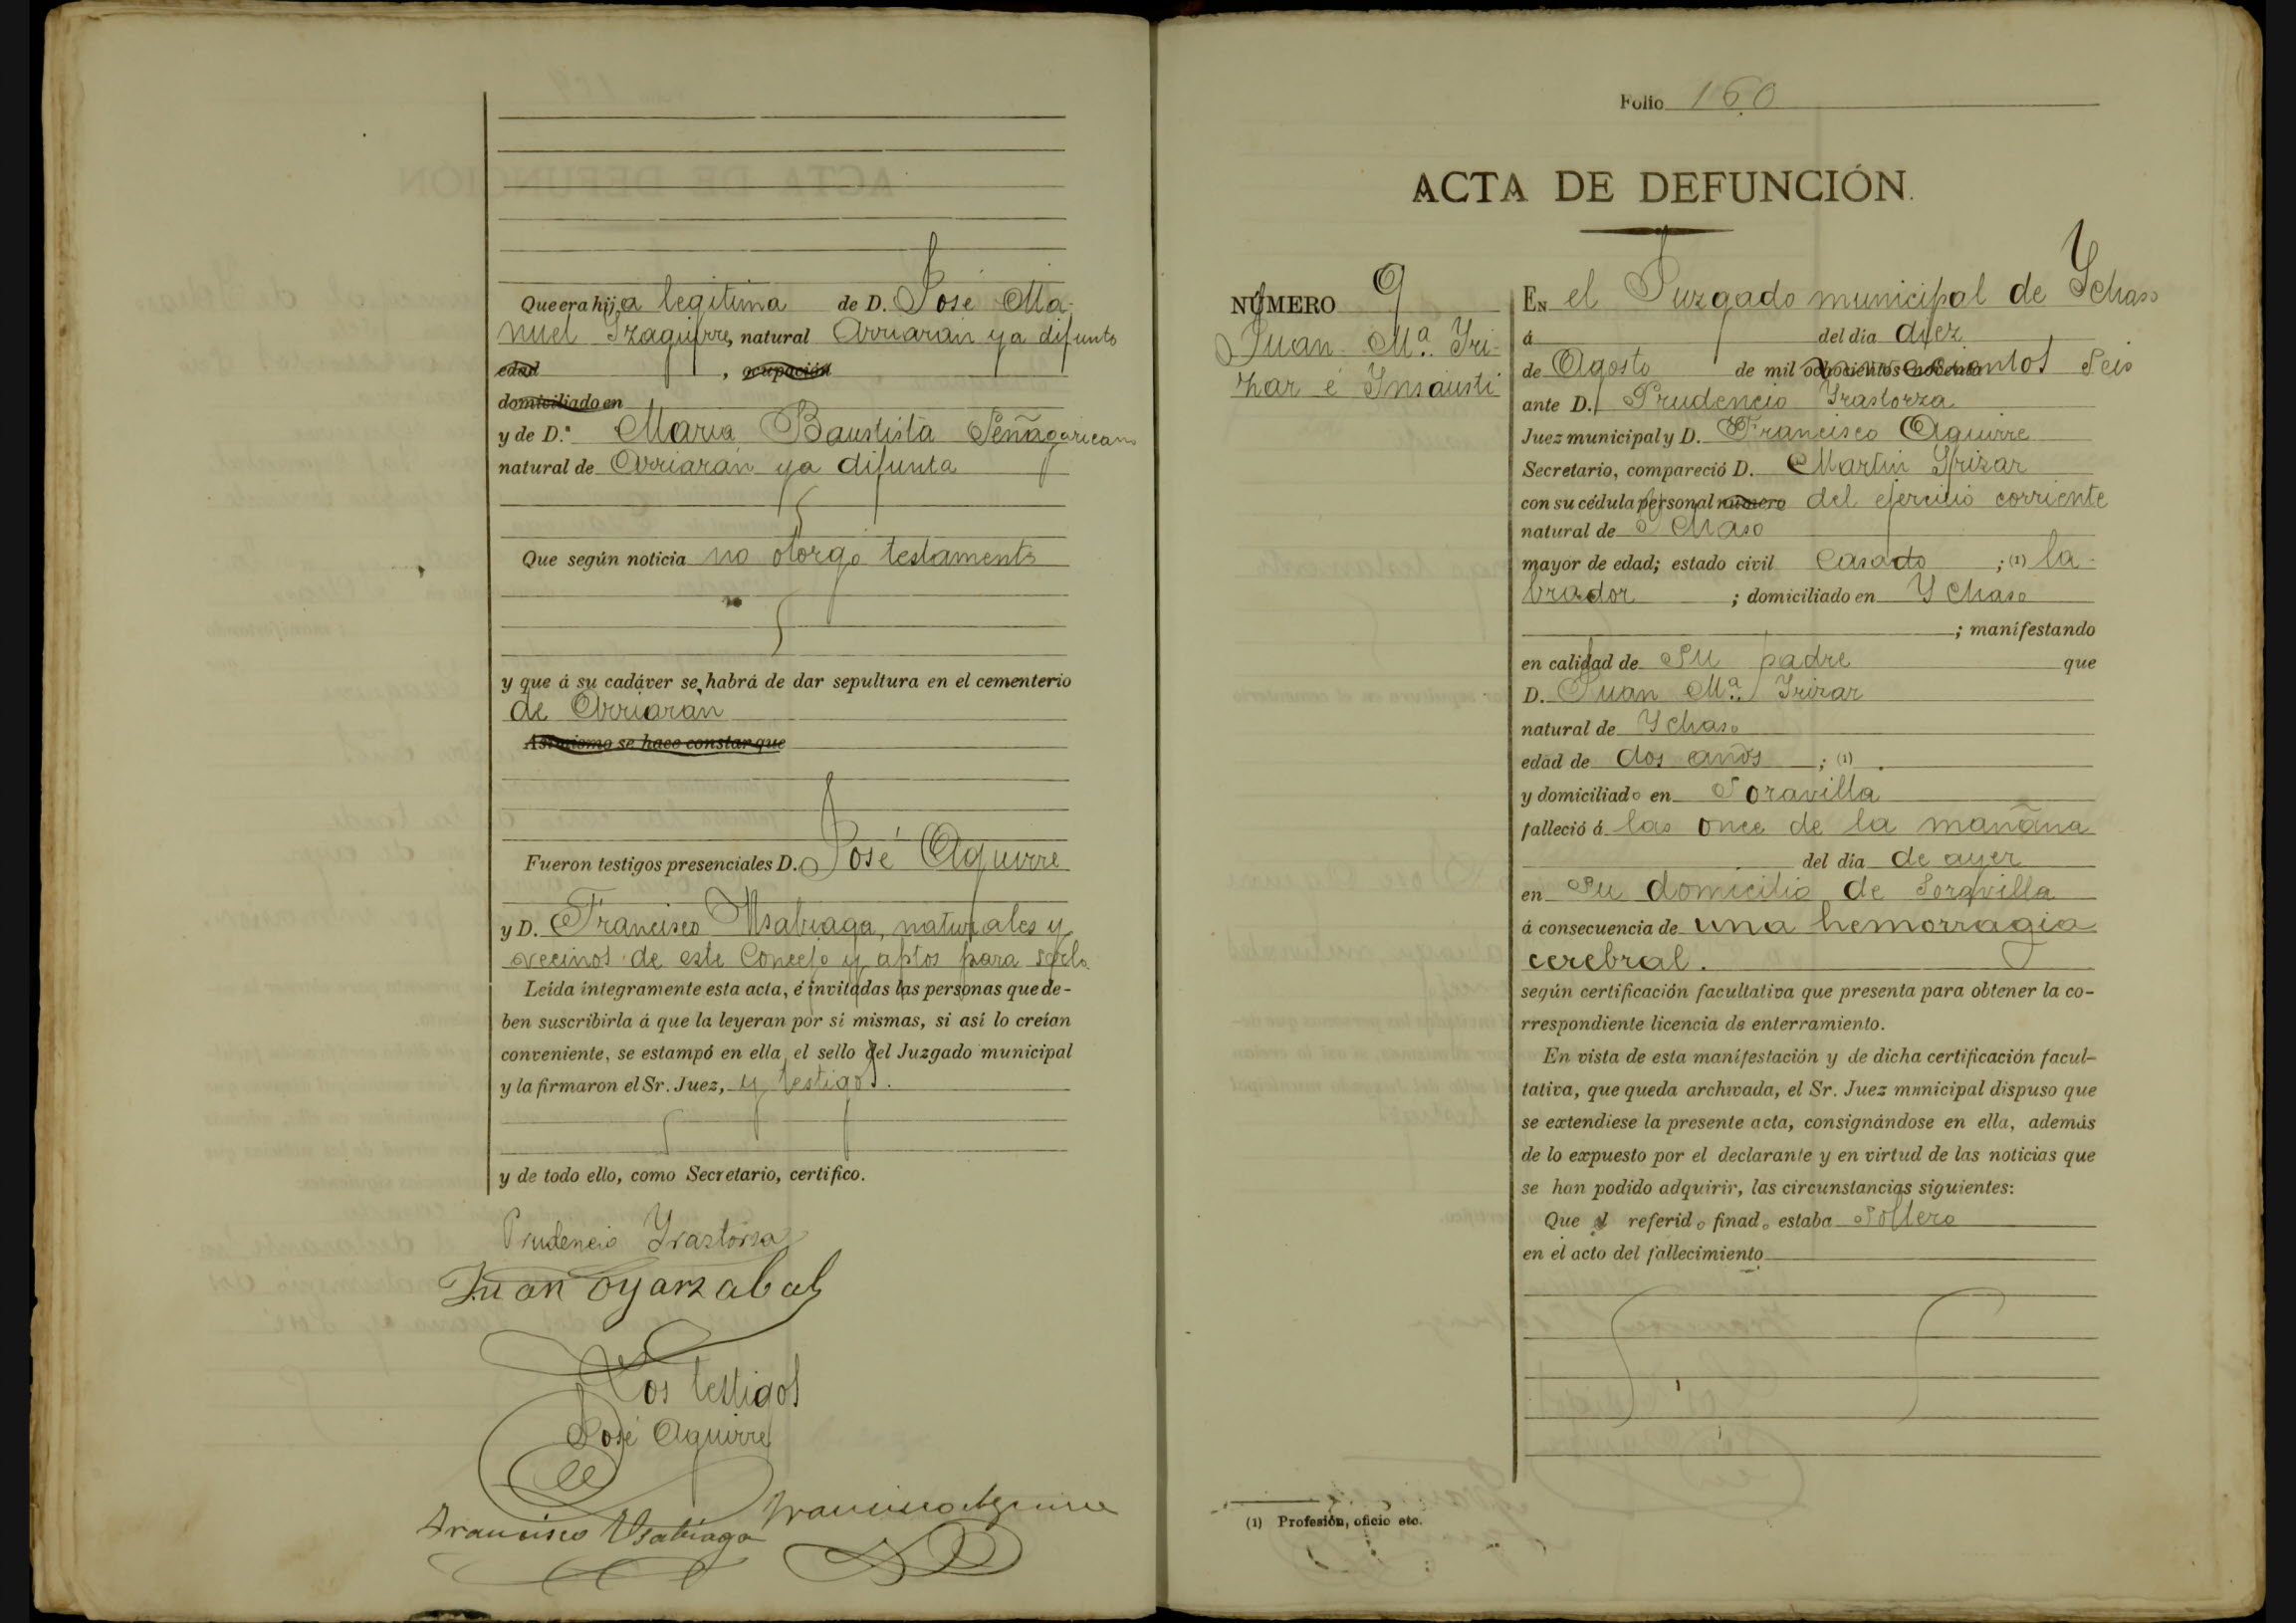 Que era hija legitima de D. José Ma-
nuel Yzaguirre, natural Arriaran ya difunto
edad , ocupación
domiciliado en
y de D.ª Maria Bautista Señagaricano
natural de Arriarán ya difunta
Que según noticia no otorgo testamento
y que á su cadáver se habrá de dar sepultura en el cementerio
de Arriaran
Asimismo se hace constar que
Fueron testigos presenciales D. José Aguirre
y D. Francisco Usabiaga, naturales y
vecinos de este Concejo y aptos para serlo
Leída íntegramente esta acta, é invitadas las personas que de-
ben suscribirla á que la leyeran por sí mismas, si así lo creían
conveniente, se estampó en ella el sello del Juzgado municipal
y la firmaron el Sr. Juez, y testigos.
y de todo ello, como Secretario, certifico.
Prudencio Yrastorza
Juan Oyarzabal
Los testigos
José Aguirre
Francisco Aguirre
Francisco Usabiaga
Folio 160
ACTA DE DEFUNCIÓN.
NÚMERO 9
Juan Mª. Yri-
zar é Ynsausti
EN el Juzgado municipal de Ychaso
á del día diez
de Agosto de mil novecientos Seis
ante D. Prudencio Yrastorza
Juez municipal y D. Francisco Aguirre
Secretario, compareció D. Martin Yrizar
con su cédula personal número del ejercicio corriente
natural de Ychaso
mayor de edad; estado civil Casado ; (1) la-
brador ; domiciliado en Ychaso
; manifestando
en calidad de Su padre que
D. Juan Mª. Yrizar
natural de Ychaso
edad de dos años ; (1) .
y domiciliado en Soravilla
falleció á las once de la mañana
del día de ayer
en Su domicilio de Soravilla
á consecuencia de una hemorragia
cerebral.
según certificación facultativa que presenta para obtener la co-
rrespondiente licencia de enterramiento.
En vista de esta manifestación y de dicha certificación facul-
tativa, que queda archivada, el Sr. Juez municipal dispuso que
se extendiese la presente acta, consignándose en ella, además
de lo expuesto por el declarante y en virtud de las noticias que
se han podido adquirir, las circunstancias siguientes:
Que el referido finado estaba Soltero
en el acto del fallecimiento
(1) Profesión, oficio etc.